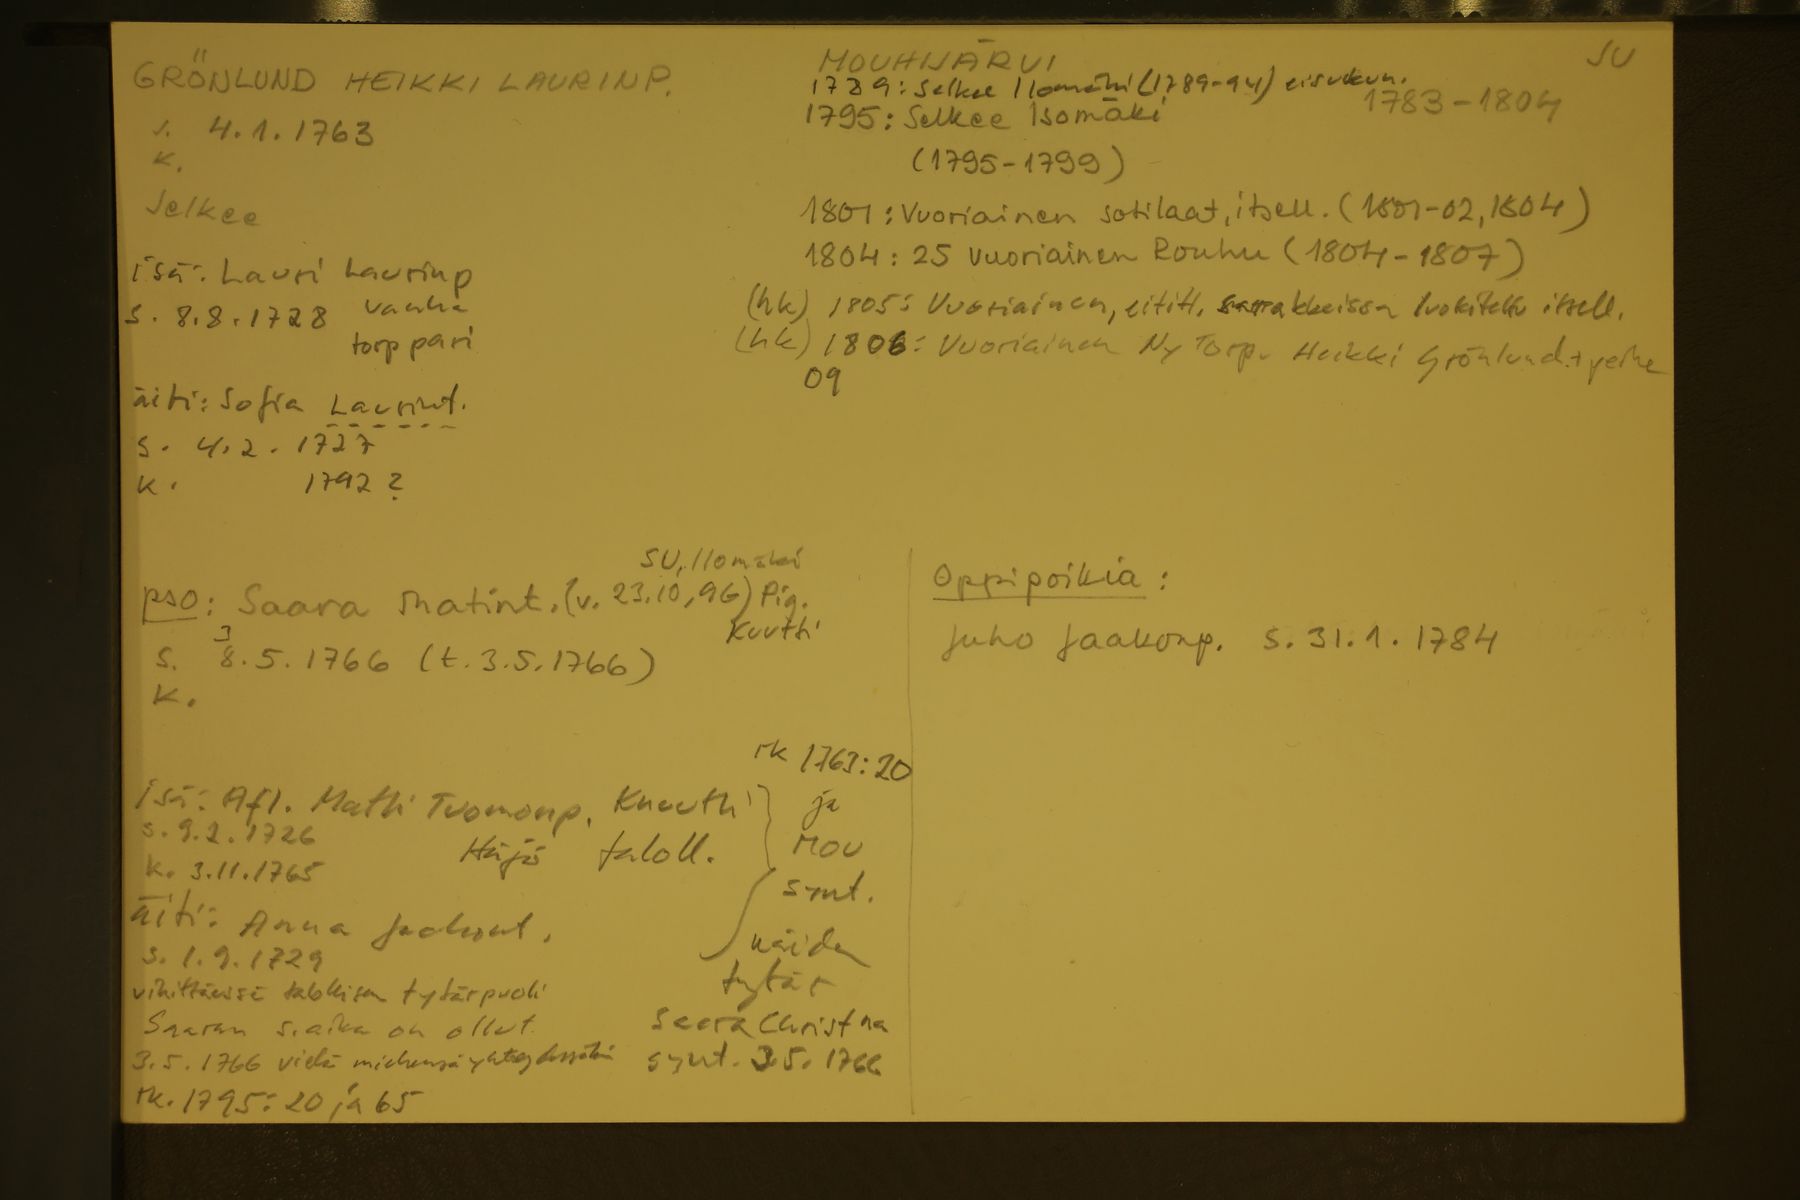 GRÖNLUND HEIKKI LAURINP.
s. 4.1.1763
K.
Selkee
isä: Lauri Laurinp
s. 8.8.1728 vanha
torppari
äiti: Sofia Laurint.
s. 4.2.1727
K. 1792?
MOUHIJÄRVI
SU
1789: Selkee Isomäki (1789-94) ei sukun.
1783-1804
1795: Selkee Isomäki
(1795-1799)
1801: Vuoriainen sotilaat, itsell. (1801-02, 1804)
1804: 25 Vuoriainen Rouhu (1804-1807)
(hk) 1805: Vuoriainen, ei titt. sarakkeissa luokiteltu itsell.
(hk) 1806: Vuoriainen Ny Torp. Heikki Grönlund + perhe
09
SU, Isomäki
pso: Saara Matint. (v. 23.10.96) Pig.
Kuutti
3
s. 8.5.1766 (t. 3.5.1766)
K.
rk 1763:20
isä: Afl. Matti Tuomonp. Knuutti
s. 9.2.1726
Häijö taloll.
k. 3.11.1765
äiti: Anna
s. 1.9.1729
vihittäessä talollisen tytärpuoli
Saaran s.aika on ollut
3.5.1766 vielä miehensä yhteydessäkin
rk. 1795: 20 ja 65
ja
MOU
synt.
näiden
tytär
Saara Christina
synt. 3.5.1766
Oppipoikia:
Juho Jaakonp. s. 31.1.1784